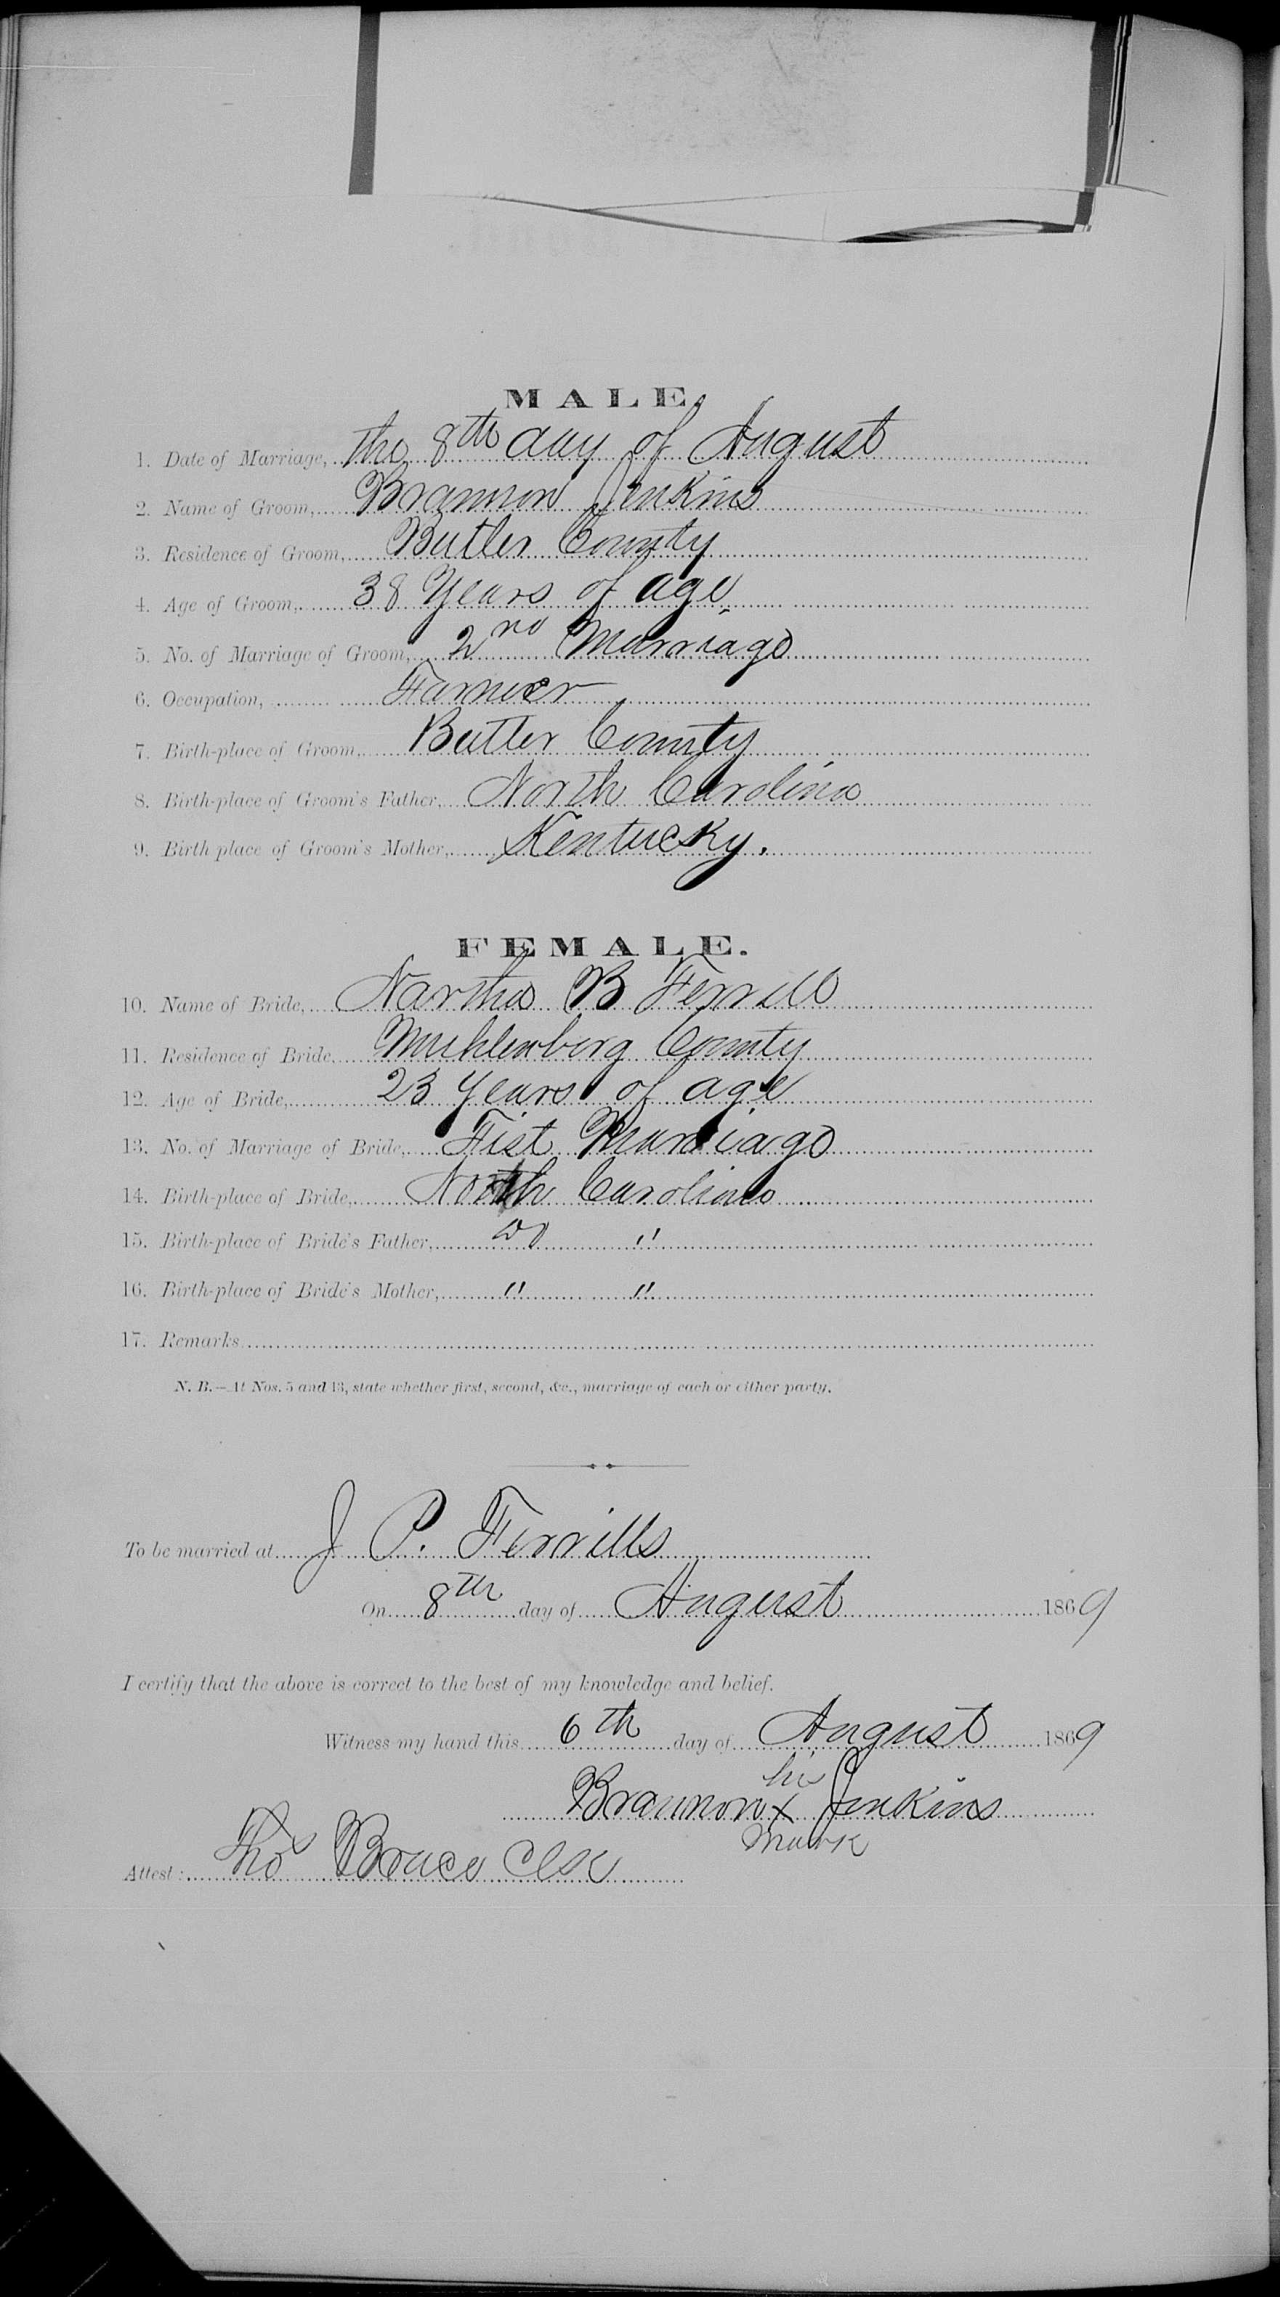 MALE.
1. Date of Marriage, the 8th day of August
2. Name of Groom, Brannon Jenkins
3. Residence of Groom, Butler County
4. Age of Groom, 38 Years of age.
5. No. of Marriage of Groom, 2nd Marriage
6. Occupation, Farmer
7. Birth-place of Groom, Butler County
8. Birth-place of Groom's Father, North Carolina
9. Birth-place of Groom's Mother, Kentucky.
FEMALE.
10. Name of Bride, Martha B Ferrill
11. Residence of Bride Muhlenberg County
12. Age of Bride, 23 years of age
13. No. of Marriage of Bride, Fist Marriage
14. Birth-place of Bride, North Carolina
15. Birth-place of Bride's Father, do "
16. Birth-place of Bride's Mother, " "
17. Remarks
N. B.—At Nos. 5 and 13, state whether first, second, &c., marriage of each or either party.
To be married at J. P. Ferrills
On 8th day of August 1869
I certify that the above is correct to the best of my knowledge and belief.
Witness my hand this 6th day of August 1869
his
Brannon X Jenkins
mark
Attest: Thos Bruce Clk